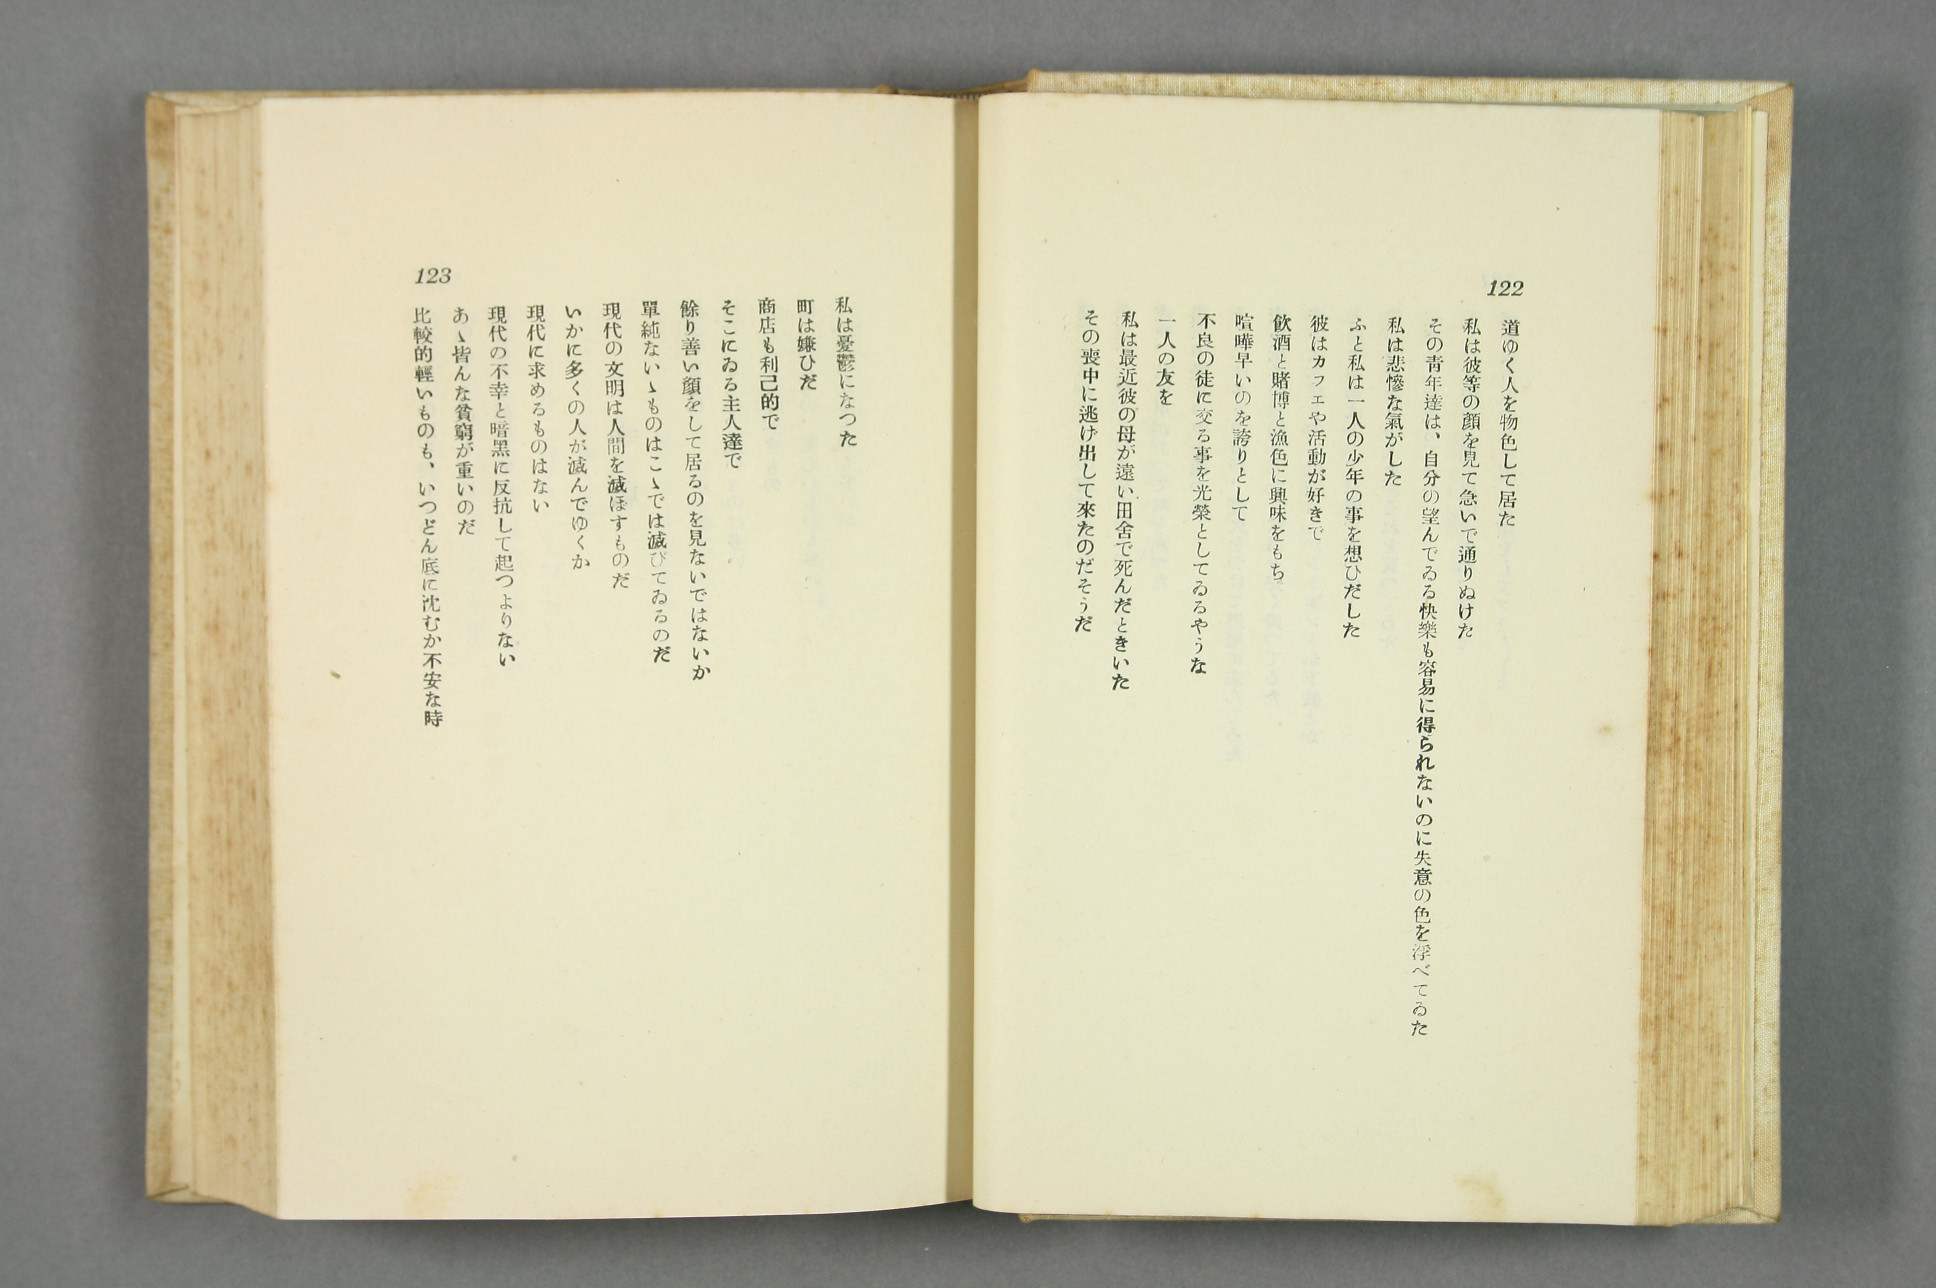 122
道ゆく人を物色して居た
私は彼等の顔を見て急いで通りぬけた
その靑年達は、自分の望んでゐる快樂も容易に得られないのに失意の色を浮べてゐた
私は悲慘な氣がした
ふと私は一人の少年の事を想ひだした
彼はカフェや活動が好きで
飮酒と賭博と漁色に興味をもち
喧嘩早いのを誇りとして
不良の徒に交る事を光榮としてゐるやうな
一人の友を
私は最近彼の母が遠い田舍で死んだときいた
その喪中に逃げ出して來たのだそうだ
123
私は憂鬱になつた
町は嫌ひだ
商店も利己的で
そこにゐる主人達で
餘り善い顔をして居るのを見ないではないか
單純ないゝものはこゝでは滅びてゐるのだ
現代の文明は人間を滅ぼすものだ
いかに多くの人が滅んでゆくか
現代に求めるものはない
現代の不幸と暗黑に反抗して起つよりない
あゝ皆んな貧窮が重いのだ
比較的輕いものも、いつどん底に沈むか不安な時